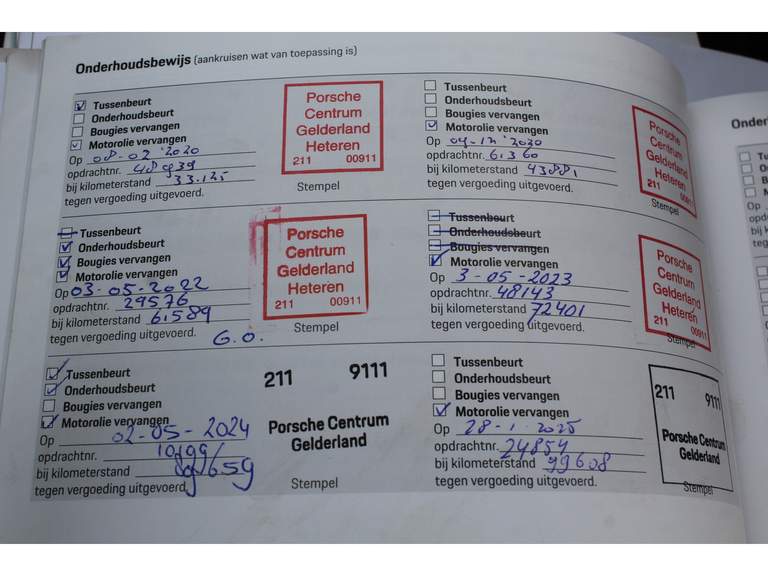 Onderhoudsbewijs (aankruisen wat van toepassing is)
Tussenbeurt
Onderhoudsbeurt
Bougies vervangen
Motorolie vervangen
Op 08-02 '2020
opdrachtnr. 48939
bij kilometerstand 33.125
tegen vergoeding uitgevoerd.
Porsche
Centrum
Gelderland
Heteren
211 00911
Stempel
Tussenbeurt
Onderhoudsbeurt
Bougies vervangen
Motorolie vervangen
Op 04-12 '2020
opdrachtnr. 6.360
bij kilometerstand 43881
tegen vergoeding uitgevoerd.
Porsche
Centrum
Gelderland
Heteren
211 00911
Stempel
Tussenbeurt
Onderhoudsbeurt
Bougies vervangen
Motorolie vervangen
Op 03-05-2022
opdrachtnr. 29576
bij kilometerstand 61.589
tegen vergoeding uitgevoerd. G.O.
Porsche
Centrum
Gelderland
Heteren
211 00911
Stempel
Tussenbeurt
Onderhoudsbeurt
Bougies vervangen
Motorolie vervangen
Op 3-05-2023
opdrachtnr. 48143
bij kilometerstand 72401
tegen vergoeding uitgevoerd.
Porsche
Centrum
Gelderland
Heteren
211 00911
Stempel
Tussenbeurt
Onderhoudsbeurt
Bougies vervangen
Motorolie vervangen
Op 02-05-2024
opdrachtnr.
bij kilometerstand
tegen vergoeding uitgevoerd.
211 9111
Porsche Centrum
Gelderland
Stempel
Tussenbeurt
Onderhoudsbeurt
Bougies vervangen
Motorolie vervangen
Op 28-1-2025
opdrachtnr. 24854
bij kilometerstand 99608
tegen vergoeding uitgevoerd.
211 9111
Porsche Centrum
Gelderland
Stempel